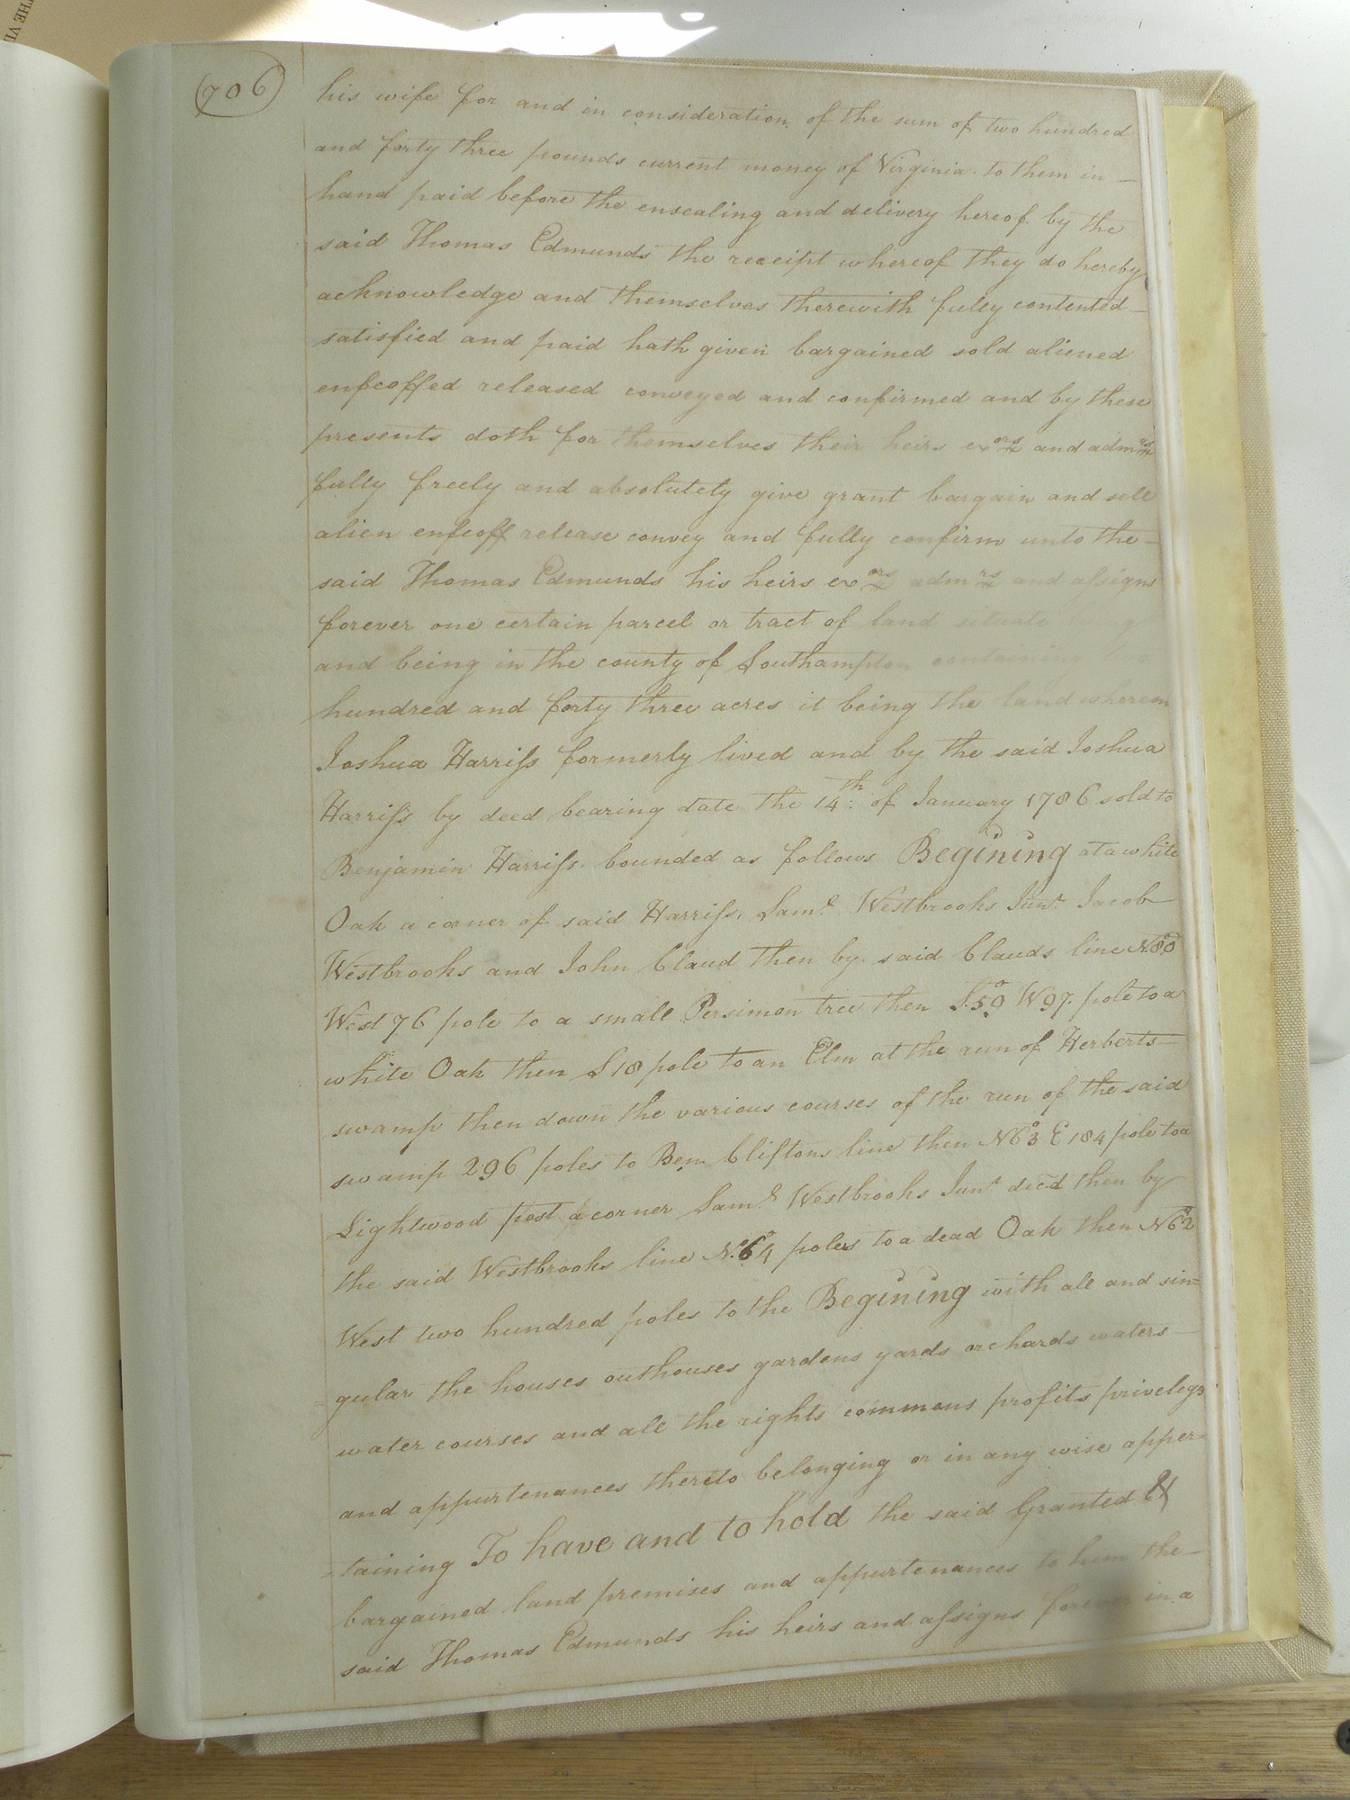 THE VI
(706)
his wife for and in consideration of the sum of two hundred
and forty three pounds current money of Virginia to them in —
hand paid before the ensealing and delivery hereof by the
said Thomas Edmunds the receipt whereof they do hereby
acknowledge and themselves therewith fully contented —
satisfied and paid hath given bargained sold aliened
enfeoffed released conveyed and confirmed and by these
presents doth for themselves their heirs exors and admrs
fully freely and absolutely give grant bargain and sell
alien enfeoff release convey and fully confirm unto the —
said Thomas Edmunds his heirs exors admrs and assigns
forever one certain parcel or tract of land situate
and being in the county of Southampton containing
hundred and forty three acres it being the land wherein
Joshua Harriss formerly lived and by the said Joshua
Harriss by deed bearing date the 14th of January 1786 sold to
Benjamin Harriss bounded as follows Begining at a white
Oak a corner of said Harriss, Saml Westbrooks Junr Jacob
Westbrooks and John Claud then by said Clauds line N80°
West 76 pole to a small Persimon tree then S.59° W 97. pole to a
white Oak then S 18 pole to an Elm at the run of Herberts —
swamp then down the various courses of the run of the said
swamp 296 poles to Ben Cliftons line then N63° E 184 pole to a
Lightwood post a corner Saml Westbrooks Junr decd then by
the said Westbrooks line N.64 poles to a dead Oak then N62°
West two hundred poles to the Begining with all and sin=
gular the houses outhouses gardens yards orchards waters —
water courses and all the rights commons profits priveleges
and appurtenances thereto belonging or in any wise apper=
=taining To have and to hold the said Granted &
bargained land premises and appurtenances to him the —
said Thomas Edmunds his heirs and assigns forever in a